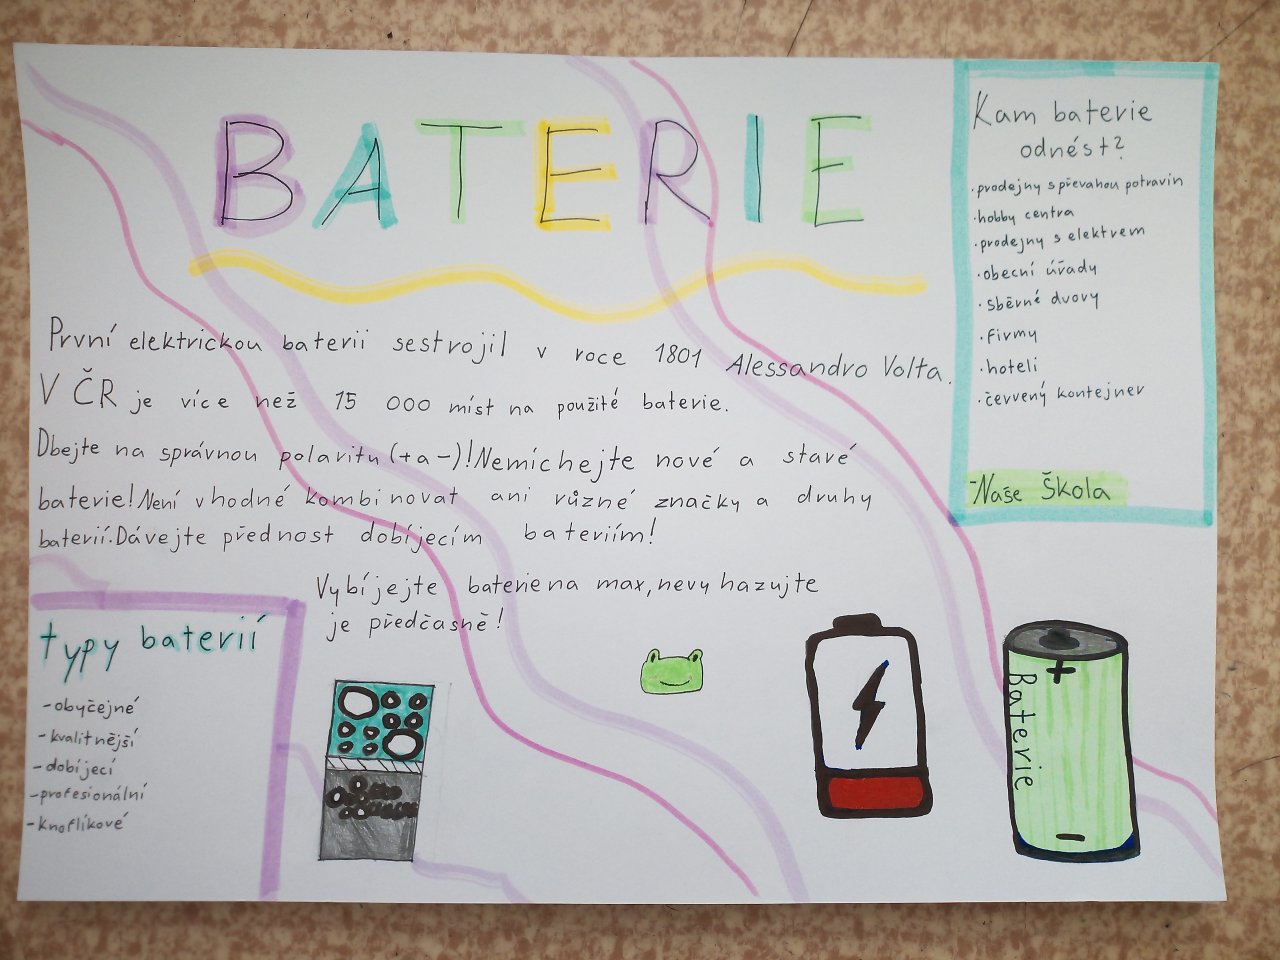 BATERIE
První elektrickou baterii sestrojil v roce 1801 Alessandro Volta.
V ČR je více než 15 000 míst na použité baterie.
Dbejte na správnou polaritu (+ a -)! Nemíchejte nové a staré
baterie! Není vhodné kombinovat ani různé značky a druhy
baterií. Dávejte přednost dobíjecím bateriím!
Vybíjejte baterie na max, nevyhazujte
je předčasně!
Kam baterie
odnést?
· prodejny s převahou potravin
· hobby centra
· prodejny s elektrem
· obecní úřady
· sběrné dvory
· firmy
· hoteli
· červený kontejner
- Naše Škola
typy baterií
- obyčejné
- kvalitnější
- dobíjecí
- profesionální
- knoflíkové
+
Baterie
-